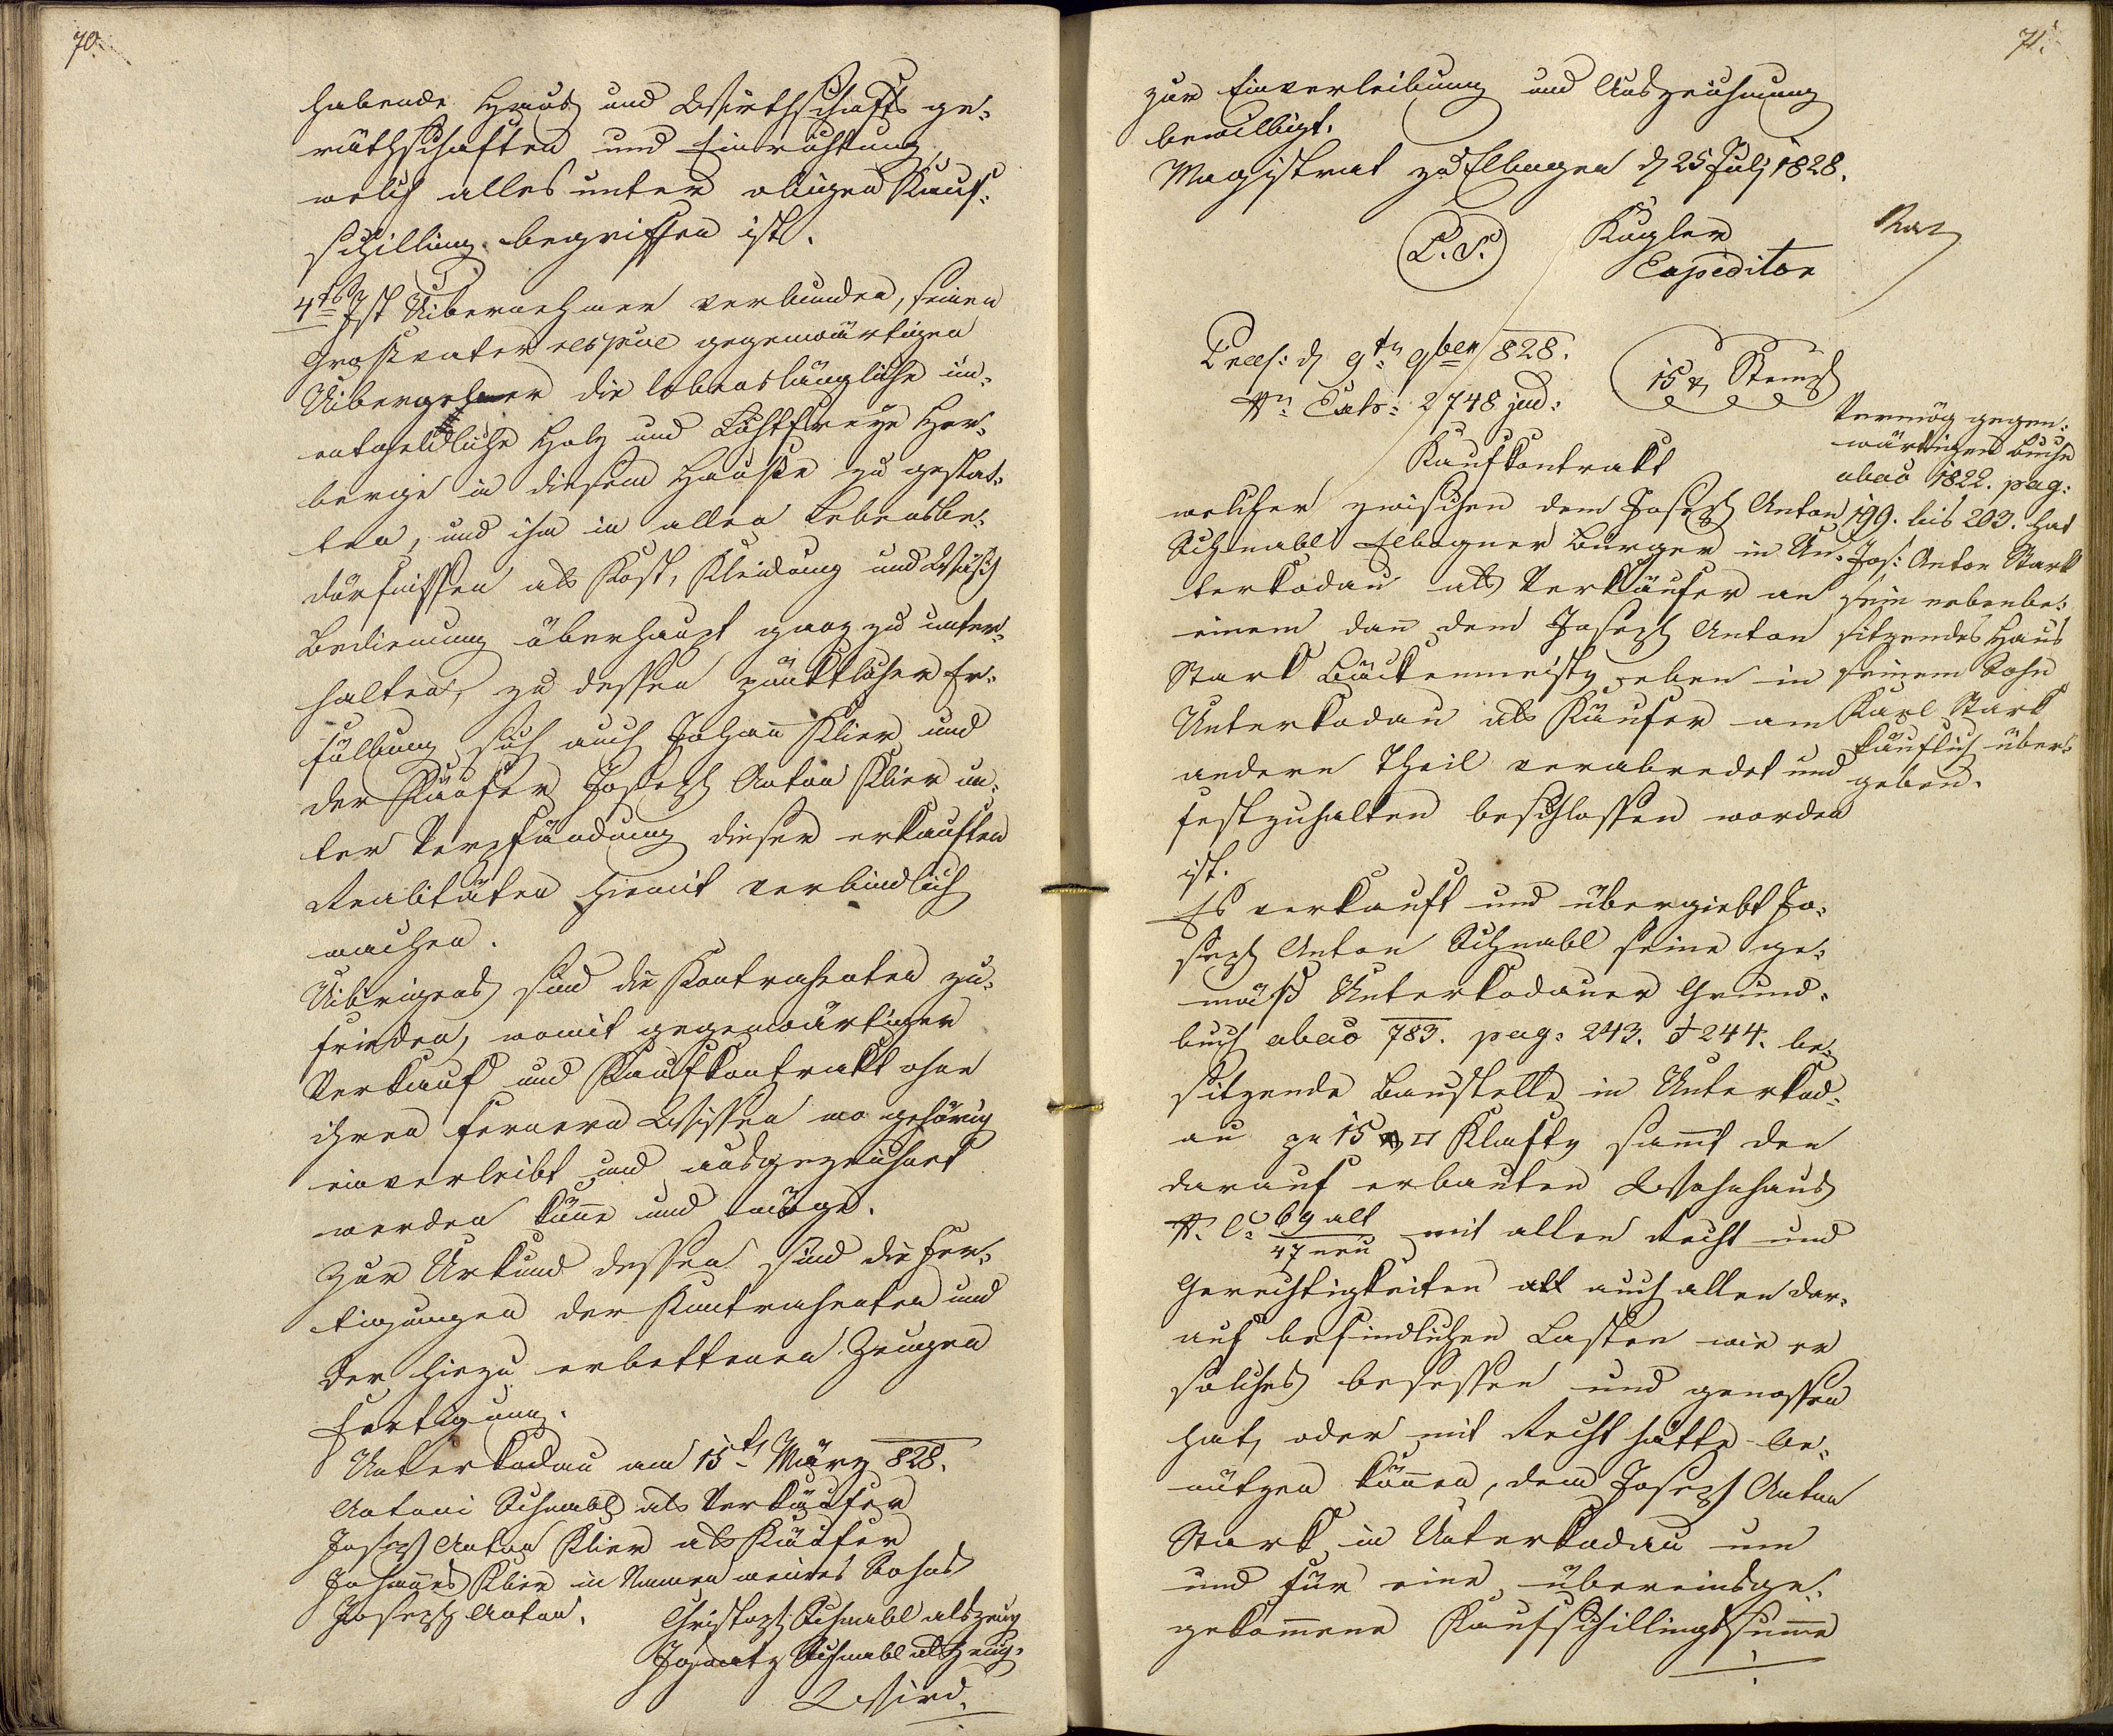 70.
habende Haus und Wirthschafts ge-
räthschaften und Einrichtung,
welch alles unter obigen Kauf-
schilling begriffen ist.
4tens Ist Uibernehmer verbunden, seinen
Großvater respve gegenwärtigen
Uibergeber die lebenslängliche un-
entgeldliche Holz und Lichtfreye Her-
berge in diesem Hause zu gestat-
ten, und ihn in allen Lebensbe-
dürfnissen als Kost, Kleidung und Wäsch
Bedienung überhaupt ganz zu unter-
halten, zu dessen pünktlicher Er-
füllung sich auch Johann Klier und
der Käufer Joseph Anton Klier un-
ter Verpfändung dieser erkauften
Realitäten hiemit verbindlich
machen.
Uibrigens sind die Kontrahenten zu-
frieden, womit gegenwärtiger
Verkauf und Kaufkontrakt ohne
ihren fernern Wissen wo gehörig
einverleibt und ausgezeichnet
werden könne und möge.
Zur Urkund dessen sind die Fer-
tigungen der Kontrahenten und
der hiezu erbettenen Zeugen
Fertigung.
Unterkodau am 15t März 828.
Antoni Schnabl als Verkäufer
Joseph Anton Klier als Käufer
Johannes Klier in Namen meines Sohns
Joseph Anton.
Christoph Schnabl als Zeug
Ignatz Schnabl als Zeug.
Wird
71.
zur Einverleibung und Auszeichnung
bewilligt.
Magistrat zu Elbogen d 25 July 1828.
L.S.
Kugler
Expeditor
Praes: d 9tn 9ber 828.
Nr Exh: 2748 jud:
15 x Stempl
Kaufkontrakt
welcher zwischen dem Joseph Anton
Schnabl Elbogner Bürger in Un-
terkodau als Verkäufer an
einem dan dem Joseph Anton
Stark Bäckenmeister eben in
Unterkodau als Käufer am
andern Theil verabredet und
festzuhalten beschlossen worden
ist.
Es verkauft und übergiebt Jo-
seph Anton Schnabl seine ge-
mäß Unterkodauer Grund-
buch abao 783. pag: 243. & 244. be-
sitzende Baustelle in Unterkod-
au zu 15 □ Klafter sammt den
darauf erbauten Wohnhaus
N. C. 69 alt
47 neu mit allen Recht und
Gerechtigkeiten auch allen dar-
auf befindlichen Lasten wie er
solches besessen und genossen
hat, oder mit Recht hätte be-
nützen können, dem Joseph Anton
Stark in Unterkodau um
und für eine übereinsge-
gekommene Kaufschillingssumme
Vermög gegen-
wärtigen Buche
abao 1822. pag:
199. bis 203. hat
Jos: Anton Stark
sein nebenbe-
sitzendes Haus
seinem Sohn
Karl Stark
käuflich über-
geben.